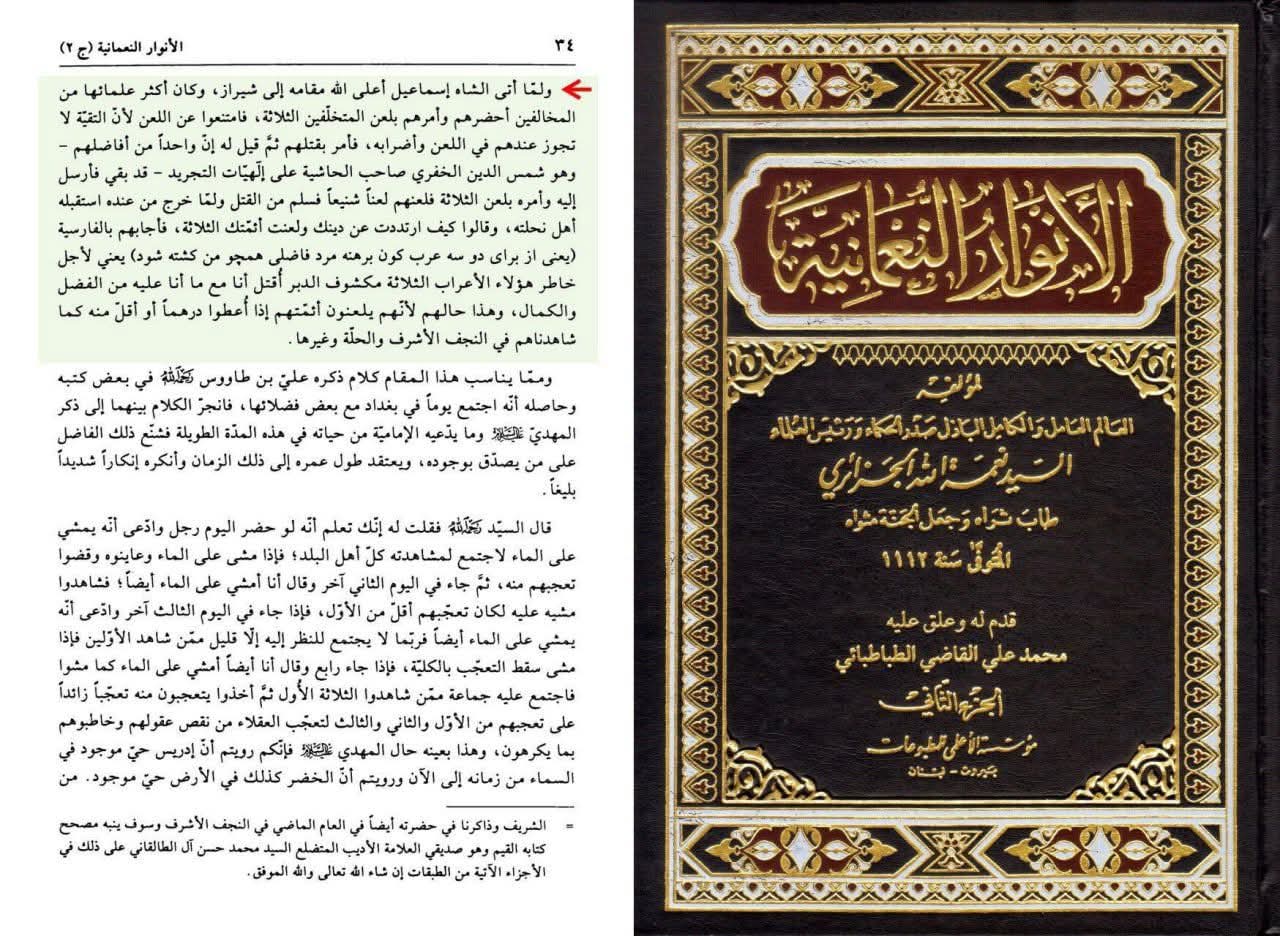 ٣٤
الأنوار النعمانية (ج ٢)
ولمّا أتى الشاه إسماعيل أعلى الله مقامه إلى شيراز، وكان أكثر علمائها من
المخالفين أحضرهم وأمرهم بلعن المتخلّفين الثلاثة، فامتنعوا عن اللعن لأنّ التقيّة لا
تجوز عندهم في اللعن وأضرابه، فأمر بقتلهم ثمَّ قيل له إنّ واحداً من أفاضلهم –
وهو شمس الدين الخفري صاحب الحاشية على إلٓهيّات التجريد – قد بقي فأرسل
إليه وأمره بلعن الثلاثة فلعنهم لعناً شنيعاً فسلم من القتل ولمّا خرج من عنده استقبله
أهل نحلته، وقالوا كيف ارتددت عن دينك ولعنت أئمّتك الثلاثة، فأجابهم بالفارسية
(يعنى از براى دو سه عرب كون برهنه مرد فاضلى همچو من كشته شود) يعني لأجل
خاطر هؤلاء الأعراب الثلاثة مكشوف الدبر أُقتل أنا مع ما أنا عليه من الفضل
والكمال، وهذا حالهم لأنّهم يلعنون أئمّتهم إذا أُعطوا درهماً أو أقلّ منه كما
شاهدناهم في النجف الأشرف والحلّة وغيرها.
وممّا يناسب هذا المقام كلام ذكره عليّ بن طاووس رحمه الله في بعض كتبه
وحاصله أنّه اجتمع يوماً في بغداد مع بعض فضلائها، فانجرّ الكلام بينهما إلى ذكر
المهديّ عليه السلام وما يدّعيه الإماميّة من حياته في هذه المدّة الطويلة فشنّع ذلك الفاضل
على من يصدّق بوجوده، ويعتقد طول عمره إلى ذلك الزمان وأنكره إنكاراً شديداً
بليغاً.
قال السيّد رحمه الله فقلت له إنّك تعلم أنّه لو حضر اليوم رجل وادّعى أنّه يمشي
على الماء لاجتمع لمشاهدته كلّ أهل البلد؛ فإذا مشى على الماء وعاينوه وقضوا
تعجبهم منه، ثمَّ جاء في اليوم الثاني آخر وقال أنا أمشي على الماء أيضاً؛ فشاهدوا
مشيه عليه لكان تعجّبهم أقلّ من الأوّل، فإذا جاء في اليوم الثالث آخر وادّعى أنّه
يمشي على الماء أيضاً فربّما لا يجتمع للنظر إليه إلّا قليل ممّن شاهد الأوّلين فإذا
مشى سقط التعجّب بالكليّة، فإذا جاء رابع وقال أنا أيضاً أمشي على الماء كما مشوا
فاجتمع عليه جماعة ممّن شاهدوا الثلاثة الأُول ثمَّ أخذوا يتعجبون منه تعجّباً زائداً
على تعجبهم من الأوّل والثاني والثالث لتعجّب العقلاء من نقص عقولهم وخاطبوهم
بما يكرهون، وهذا بعينه حال المهدي عليه السلام فإنّكم رويتم أنّ إدريس حيّ موجود في
السماء من زمانه إلى الآن ورويتم أنّ الخضر كذلك في الأرض حيّ موجود. من
= الشريف وذاكرنا في حضرته أيضاً في العام الماضي في النجف الأشرف وسوف ينبه مصحح
كتابه القيم وهو صديقي العلامة الأديب المتضلع السيد محمد حسن آل الطالقاني على ذلك في
الأجزاء الآتية من الطبقات إن شاء الله تعالى والله الموفق.
الأنوار النعمانية
لمؤلفه
العالم العامل والكامل الباذل صدر الحكماء ورئيس العلماء
السيد نعمة الله الجزائري
طاب ثراه وجعل الجنة مثواه
المتوفى سنة ١١١٢
قدم له وعلق عليه
محمد علي القاضي الطباطبائي
الجزء الثاني
مؤسسة الأعلمي للمطبوعات
بيروت - لبنان